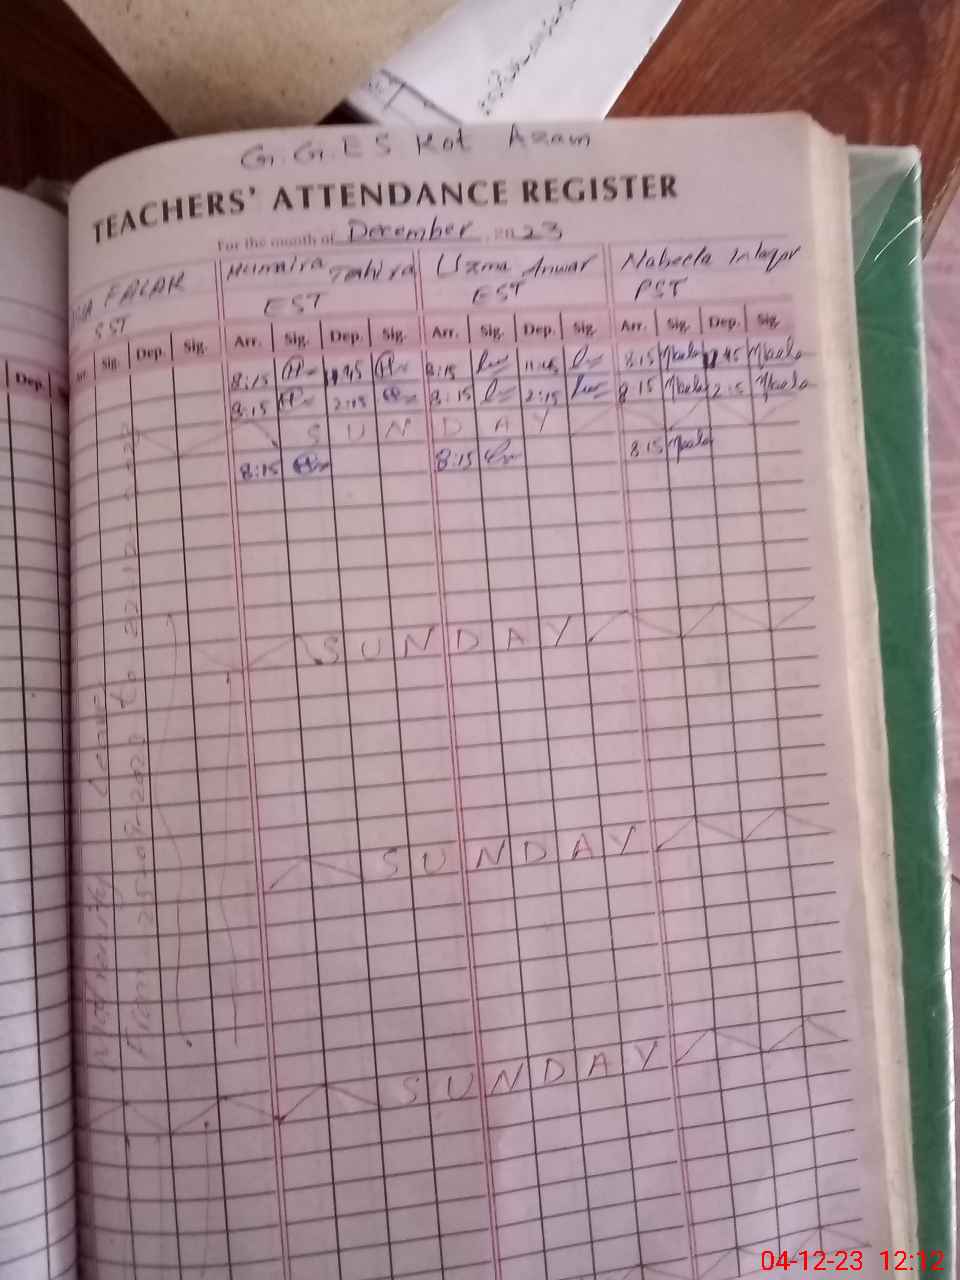 G.G.E S Kot Azam
TEACHERS' ATTENDANCE REGISTER
For the month of December, 2023
FALAK Humaira Tahira Uzma Anwar Nabeela
SST EST EST PST
Dep. Sig. Dep. Sig. Arr. Sig. Dep. Sig. Arr. Sig. Dep. Sig. Arr. Sig. Dep. Sig.
8:15 11:45 8:15 11:45 8:15 Nbeela 11:45 Nbeela
8:15 2:15 8:15 2:15 8:15 Nbeela 2:15 Nbeela
SUNDAY
8:15 8:15 8:15 Nbeela
SUNDAY
SUNDAY
SUNDAY
Maternity Leave
From 25-09-2023 to 22-12-2023
04-12-23 12:12